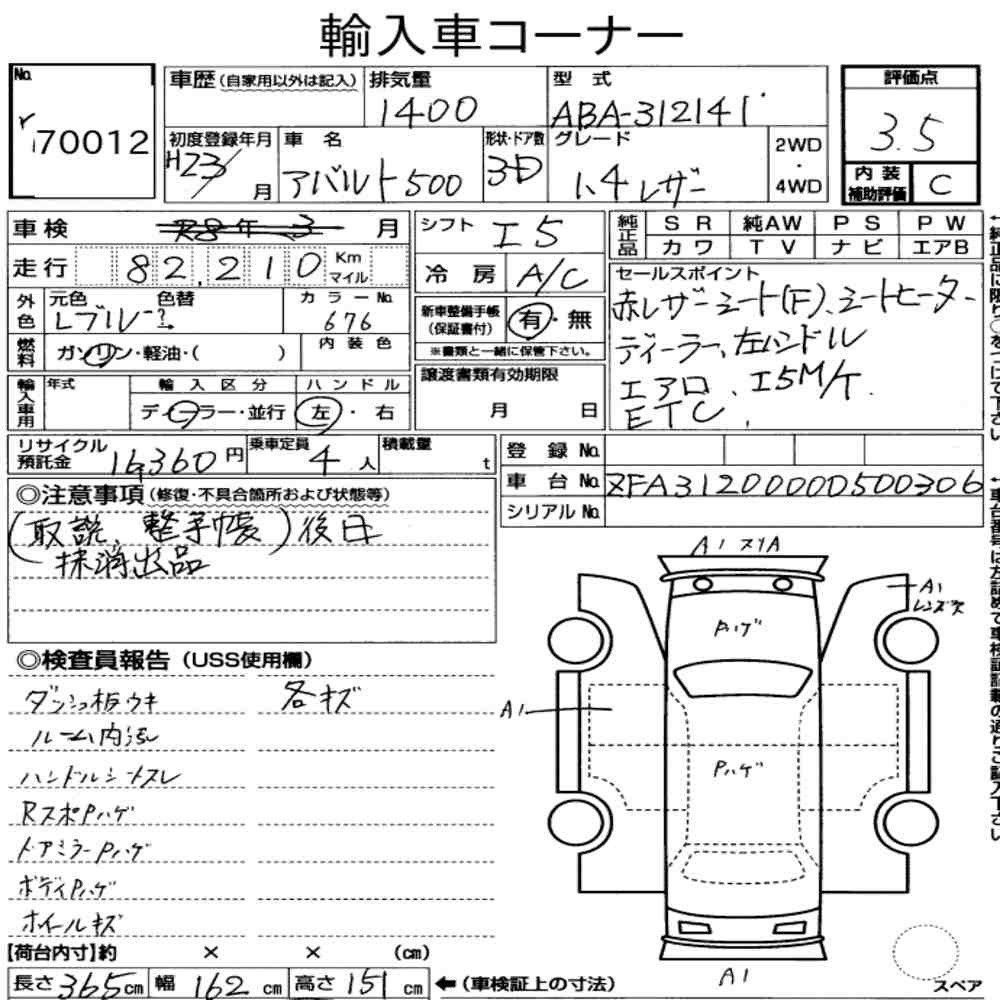 輸入車コーナー
No.
70012
車歴(自家用以外は記入) 排気量 型式 評価点
1400 ABA-312141 3.5
初度登録年月 車名 形状・ドア数 グレード 2WD・4WD
H23/ 月 アバルト500 3D 1.4レザー
内装補助評価 C
車検 R8年 3月 シフト I5 純正品 SR 純AW PS PW
カワ TV ナビ エアB
走行 82,210 Km マイル 冷房 A/C
セールスポイント
赤レザーシート(F)、シートヒーター
ディーラー、左ハンドル
エアロ、I5M/T.
ETC,
外色 元色 色替 カラーNo. 新車整備手帳(保証書付) 有・無
Lブルー? 676
燃料 ガソリン・軽油・( ) 内装色 ※書類と一緒に保管下さい。
輸入車用 年式 輸入区分 ハンドル 譲渡書類有効期限
ディーラー・並行 左・右 月 日
リサイクル預託金 14360円 乗車定員 4人 積載量 t
登録No.
車台No. ZFA3120000D500306
シリアルNo.
◎注意事項(修復・不具合箇所および状態等)
(取説、整手帳)後日
抹消出品
◎検査員報告(USS使用欄)
ダッシュ板ウキ 各キズ
ルーム内汚レ
ハンドルシートスレ
RスポPハゲ
ドアミラーPハゲ
ボディPハゲ
ホイールキズ
A1 スリA
A1
レンズ欠
Pハゲ
A1
Pハゲ
A1
スペア
【荷台内寸】約 × × (cm)
長さ 365cm 幅 162cm 高さ 151cm ←(車検証上の寸法)
↑純正品に限り○をつけて下さい
↑車台番号は左詰めで車検証記載の通りご記入下さい